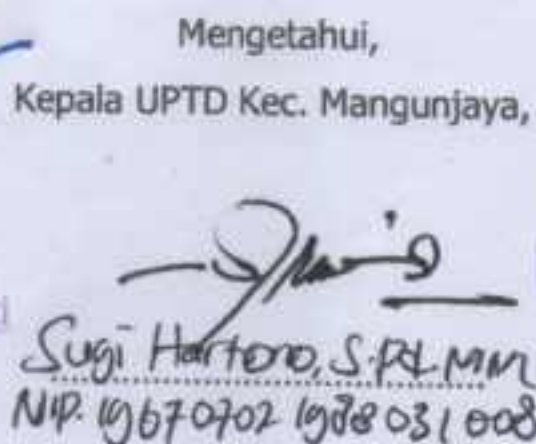 Mengetahui,
Kepala UPTD Kec. Mangunjaya,
Sugi Hartono, S.Pd. MM
NIP. 19670702 198803 1 008